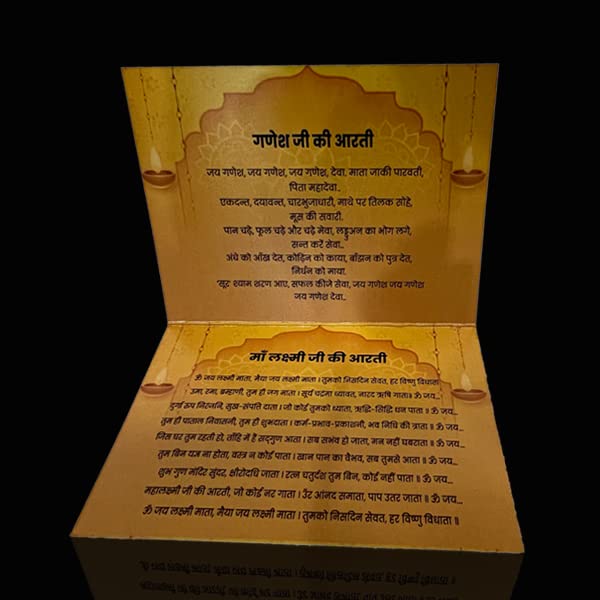 गणेश जी की आरती
जय गणेश, जय गणेश, जय गणेश, देवा, माता जाकी पारवती,
पिता महादेवा..
एकदन्त, दयावन्त, चारभुजाधारी, माथे पर तिलक सोहे,
मूस की सवारी.
पान चढ़े, फूल चढ़े और चढ़े मेवा, लड्डुअन का भोग लगे,
सन्त करें सेवा..
अंधे को आँख देत, कोढ़िन को काया, बाँझन को पुत्र देत,
निर्धन को माया.
'सूर' श्याम शरण आए, सफल कीजे सेवा, जय गणेश जय गणेश
जय गणेश देवा..
माँ लक्ष्मी जी की आरती
ॐ जय लक्ष्मी माता, मैया जय लक्ष्मी माता । तुमको निसदिन सेवत, हर विष्णु विधाता
उमा, रमा, ब्रम्हाणी, तुम ही जग माता । सूर्य चद्रमा ध्यावत, नारद ऋषि गाता ॥ ॐ जय...
दुर्गा रुप निरंजनि, सुख-संपति दाता । जो कोई तुमको ध्याता, ऋद्धि-सिद्धि धन पाता ॥ ॐ जय...
तुम ही पाताल निवासनी, तुम ही शुभदाता । कर्म-प्रभाव-प्रकाशनी, भव निधि की त्राता ॥ ॐ जय...
जिस घर तुम रहती हो, ताँहि में हैं सद्गुण आता । सब सभंव हो जाता, मन नहीं घबराता ॥ ॐ जय...
तुम बिन यज्ञ ना होता, वस्त्र न कोई पाता । खान पान का वैभव, सब तुमसे आता ॥ ॐ जय...
शुभ गुण मंदिर सुंदर, क्षीरोदधि जाता । रत्न चतुर्दश तुम बिन, कोई नहीं पाता ॥ ॐ जय...
महालक्ष्मी जी की आरती, जो कोई नर गाता । उँर आंनद समाता, पाप उतर जाता ॥ ॐ जय...
ॐ जय लक्ष्मी माता, मैया जय लक्ष्मी माता । तुमको निसदिन सेवत, हर विष्णु विधाता ॥